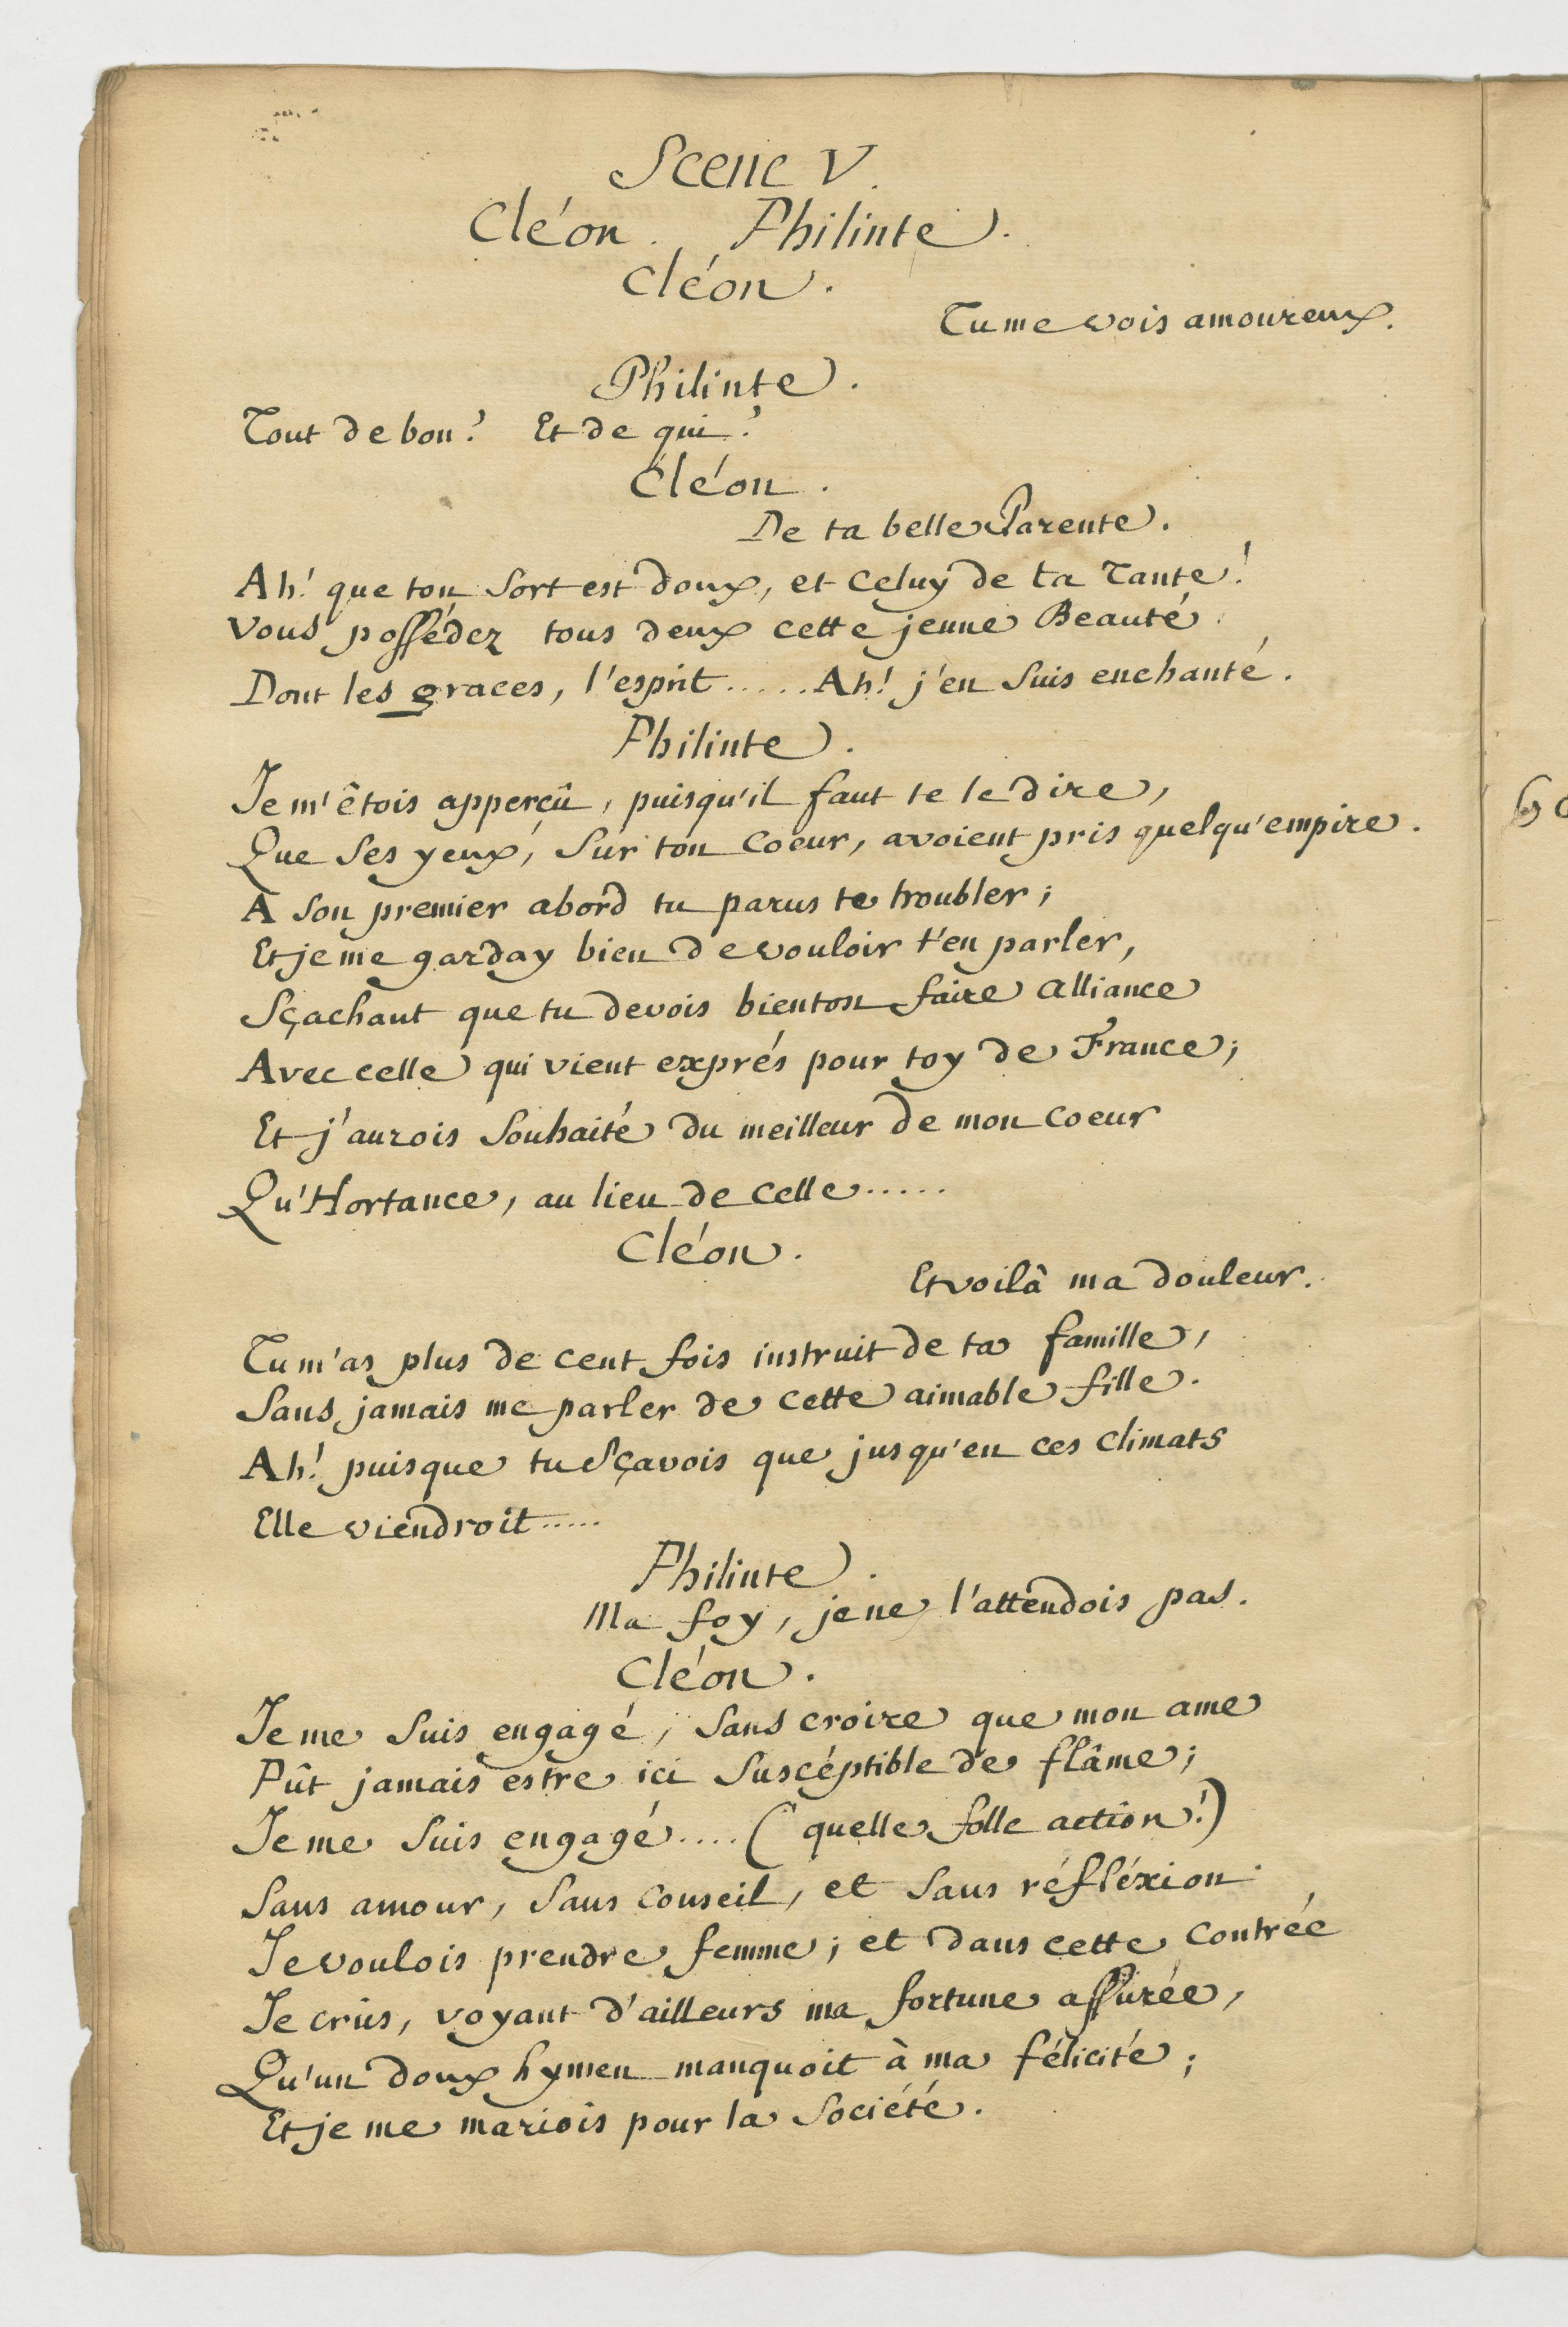 Scene V.
Cléon. Philinte.
Cléon.
Tu me vois amoureux.
Philinte.
Tout de bon? Et de qui?
Cléon.
De ta belle Parente.
Ah! que ton sort est doux, et celuy de ta Tante!
Vous possédez tous deux cette jeune Beauté
Dont les graces, l'esprit ..... Ah! j'en suis enchanté.
Philinte.
Je m'êtois apperçû, puisqu'il faut te le dire,
Que ses yeux, sur ton coeur, avoient pris quelqu'empire.
A son premier abord tu parus te troubler;
Et je me garday bien de vouloir t'en parler,
Sçachant que tu devois bientost faire alliance
Avec celle qui vient exprés pour toy de France;
Et j'aurois souhaité du meilleur de mon coeur
Qu'Hortance, au lieu de celle.....
Cléon.
Et voilà ma douleur.
Tu m'as plus de cent fois instruit de ta famille,
Sans jamais me parler de cette aimable fille.
Ah! puisque tu sçavois que jusqu'en ces climats
Elle viendroit.....
Philinte.
Ma foy, je ne l'attendois pas.
Cléon.
Je me suis engagé, sans croire que mon ame
Pût jamais estre ici suscéptible de flâme;
Je me suis engagé.... (quelle folle action!)
Sans amour, sans conseil, et sans réfléxion.
Je voulois prendre femme; et dans cette contrée
Je crûs, voyant d'ailleurs ma fortune assurée,
Qu'un doux hymen manquoit à ma félicité;
Et je me mariois pour la société.